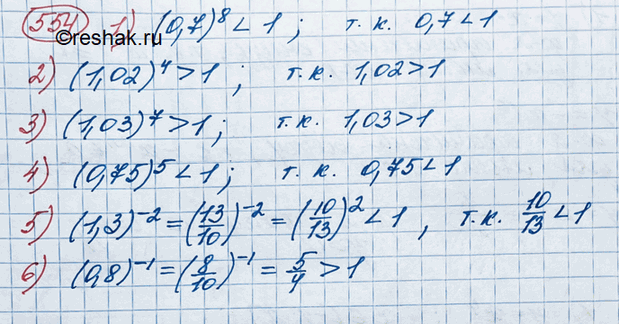 554 1) (0,7)^8 < 1 ; т. к. 0,7 < 1
©reshak.ru
2) (1,02)^4 > 1 ; т. к. 1,02 > 1
3) (1,03)^7 > 1 ; т. к. 1,03 > 1
4) (0,75)^5 < 1 ; т. к. 0,75 < 1
5) (1,3)^-2 = (13/10)^-2 = (10/13)^2 < 1 , т. к. 10/13 < 1
6) (0,8)^-1 = (8/10)^-1 = 5/4 > 1